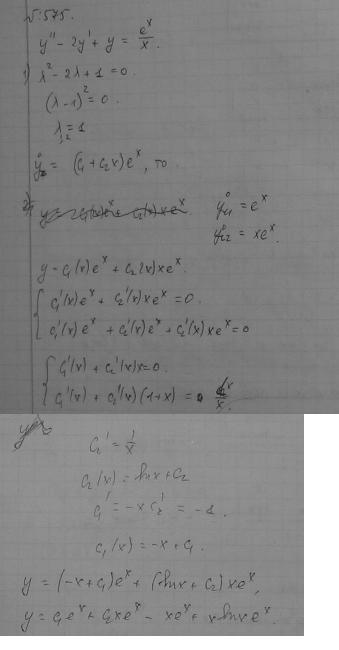 N: 575.
y'' - 2y' + y = e^x/x.
1) λ² - 2λ + 1 = 0.
(λ - 1)² = 0.
λ₁,₂ = 1
y₀ = (C₁ + C₂x)e^x, то
2) y₁° = e^x
y₂° = xe^x.
y = C₁(x)e^x + C₂(x)xe^x.
{ C₁'(x)e^x + C₂'(x)xe^x = 0.
C₁'(x)e^x + C₂'(x)e^x + C₂'(x)xe^x = 0
{ C₁'(x) + C₂'(x)x = 0.
C₁'(x) + C₂'(x)(1+x) = 1/x.
C₂' = 1/x
C₂(x) = ln x + C₂
C₁' = -x C₂' = -1.
C₁(x) = -x + C₁.
y = (-x + C₁)e^x + (ln x + C₂)xe^x,
y = C₁e^x + C₂xe^x - xe^x + x ln x e^x.